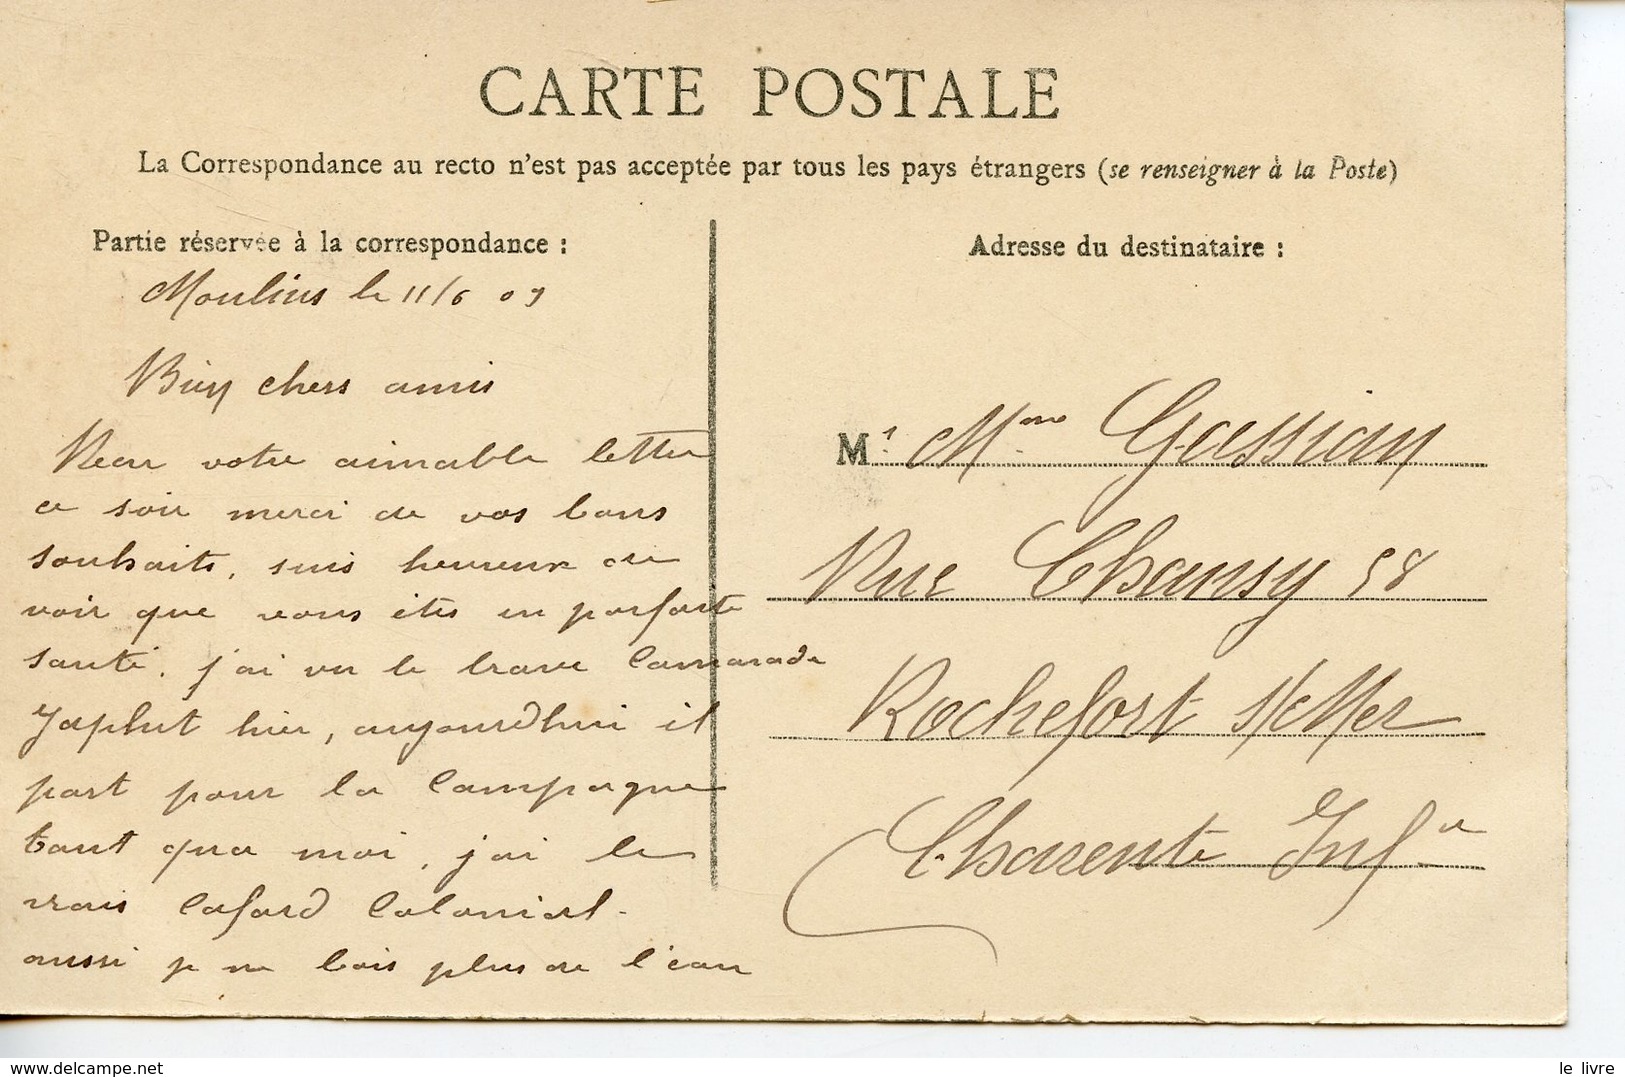 CARTE POSTALE
La Correspondance au recto n'est pas acceptée par tous les pays étrangers (se renseigner à la Poste)
Partie réservée à la correspondance :
Moulins le 11/6 09
Bien chers amis
Recu votre aimable lettre
ce soir merci de vos bons
souhaits, suis heureux de
voir que vous êtes en parfaite
santé. j'ai vu le brave Camarade
hier, aujourdhui il
part pour la Campagne
tant qua moi, j'ai le
vrais Cafard Colonial.
aussi je ne bois plus de l'eau
Adresse du destinataire :
M r Mme Gassian
Rue Chansy 58
Rochefort s/Mer
Charente Infre
delcampe.net
le livre